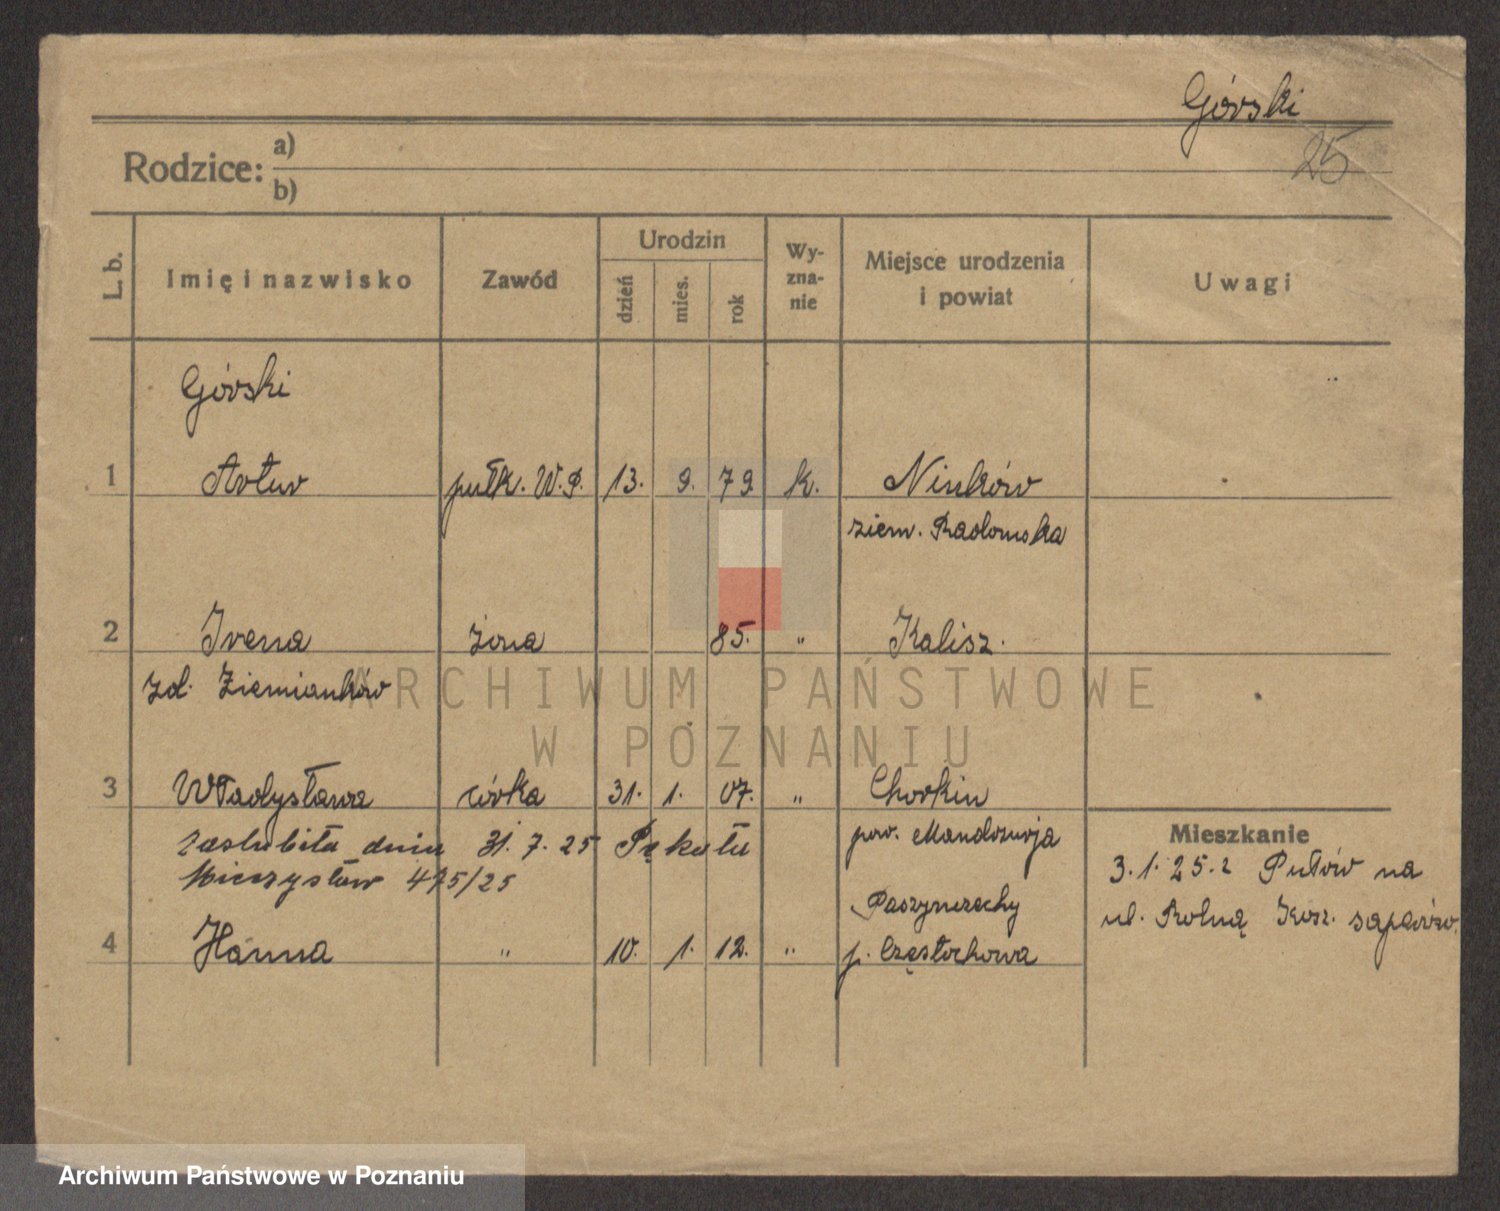 Górski
25
Rodzice: a)
b)
L. b.
Imię i nazwisko
Zawód
Urodzin
dzień
mies.
rok
Wy-
zna-
nie
Miejsce urodzenia
i powiat
Uwagi
Górski
1 Artur pułk. W.P. 13. 9. 79 k. Ninków
ziem. Radomska
2 Irena żona 85. " Kalisz.
zd. Ziemianków
ARCHIWUM PAŃSTWOWE
W POZNANIU
3 Władysława córka 31. 1. 07. " Charkin
pow. Mandżurja
zaślubiła dniu 31. 7. 25 Pękału
Mieczysław 475/25
4 Hanna " 10. 1. 12. "
p. Częstochowa
Mieszkanie
3. 1. 25. z na
ul. Rolną Kosz. saperów.
Archiwum Państwowe w Poznaniu